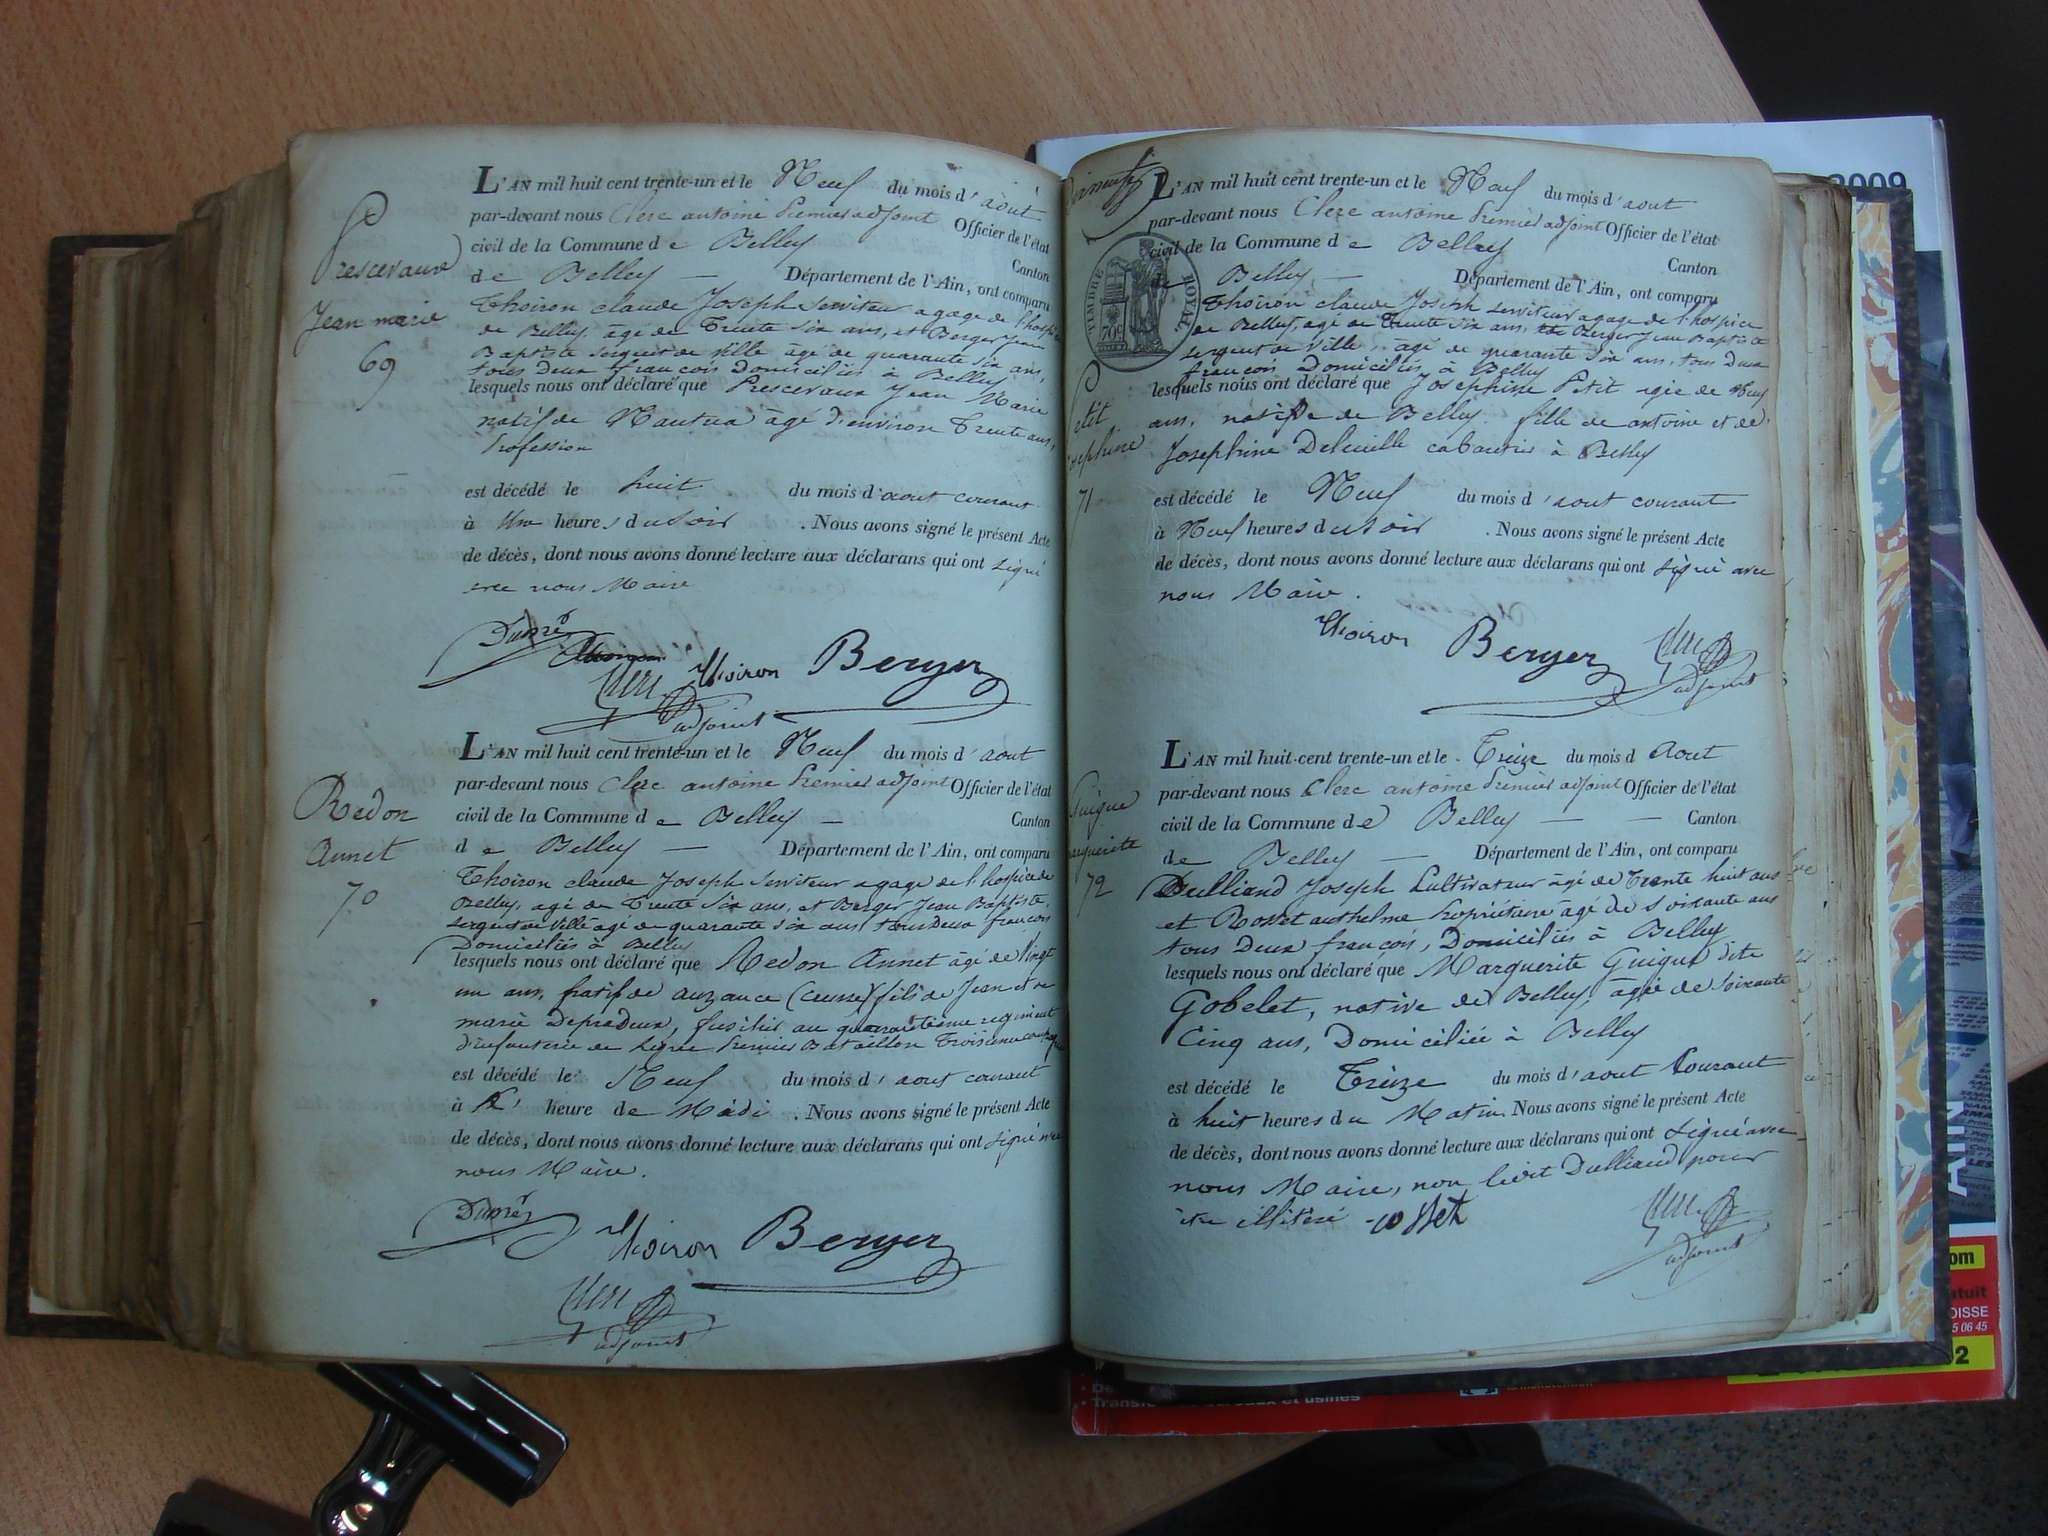 Prescevaux
Jean marie
69
L'AN mil huit cent trente-un et le Neuf du mois d'aout
par-devant nous Clerc antoine Premier adjoint Officier de l'état
civil de la Commune de Belley Canton
de Belley — Département de l'Ain, ont comparu
Thoiron claude Joseph Serviteur agage de l'hospice
de Belley, âgé de Trente Six ans, et Berger Jean
Baptiste Sergent de ville âgé de quarante Six ans,
tous Deux françois Domiciliés à Belley
lesquels nous ont déclaré que Prescevaux Jean Marie
natif de Nantua âgé d'environ Trente ans,
Profession
est décédé le huit du mois d'aout courant
à Une heures du Soir . Nous avons signé le présent Acte
de décès, dont nous avons donné lecture aux déclarans qui ont Signé
avec nous Maire
Dupré
Thoiron Berger
Clerc
adjoint
Redon
Annet
70
L'AN mil huit cent trente-un et le Neuf du mois d'aout
par-devant nous Clerc antoine Premier adjoint Officier de l'état
civil de la Commune de Belley — Canton
de Belley — Département de l'Ain, ont comparu
Thoiron claude Joseph Serviteur agage de l'hospice de
Belley, âgé de Trente Six ans, et Berger Jean Baptiste,
Sergent de Ville âgé de quarante Six ans tous Deux françois
Domiciliés à Belley
lesquels nous ont déclaré que Redon Annet âgé de Vingt
un ans, natif de auzance (creuse) fils de Jean et de
marie Depradeux, fusilier au quarantième regiment
d'infanterie de Ligne Premier Bataillon Troisieme compagnie
est décédé le Neuf du mois d'aout courant
à heure de Midi . Nous avons signé le présent Acte
de décès, dont nous avons donné lecture aux déclarans qui ont Signé avec
nous Maire.
Dupré
Thoiron Berger
Clerc
adjoint
TIMBRE ROYAL
70c
Petit
Josephine
71
L'AN mil huit cent trente-un et le Neuf du mois d'aout
par-devant nous Clerc antoine Premier adjoint Officier de l'état
civil de la Commune de Belley Canton
de Belley — Département de l'Ain, ont comparu
Thoiron claude Joseph Serviteur agage de l'hospice
de Belley, âgé de Trente Six ans, Berger Jean Baptiste
Sergent de Ville, âgé de quarante Six ans, tous Deux
françois Domiciliés à Belley
lesquels nous ont déclaré que Josephine Petit agée de Neuf
ans, native de Belley fille de antoine et de
Josephine cabaretier à Belley
est décédé le Neuf du mois d'aout courant
à Neuf heures du Soir . Nous avons signé le présent Acte
de décès, dont nous avons donné lecture aux déclarans qui ont Signé avec
nous Maire.
Thoiron Berger Clerc
adjoint
Guigue
Marguerite
72
L'AN mil huit-cent trente-un et le Treize du mois d Aout
par-devant nous Clerc antoine Premier adjoint Officier de l'état
civil de la Commune de Belley — — Canton
de Belley — Département de l'Ain, ont comparu
Dulliand Joseph Cultivateur âgé de Trente huit ans
et Rosset anthelme Propriétaire âgé de Soixante ans
tous Deux françois, Domiciliés à Belley
lesquels nous ont déclaré que Marguerite Guigue dite
Gobelet, native de Belley, agée de Soixante
Cinq ans, Domiciliée à Belley
est décédé le Treize du mois d'aout Courant
à huit heures du Matin Nous avons signé le présent Acte
de décès, dont nous avons donné lecture aux déclarans qui ont Signé avec
nous Maire, non ledit Dulliand pour
être illitéré
Clerc
adjoint
2009
AIN